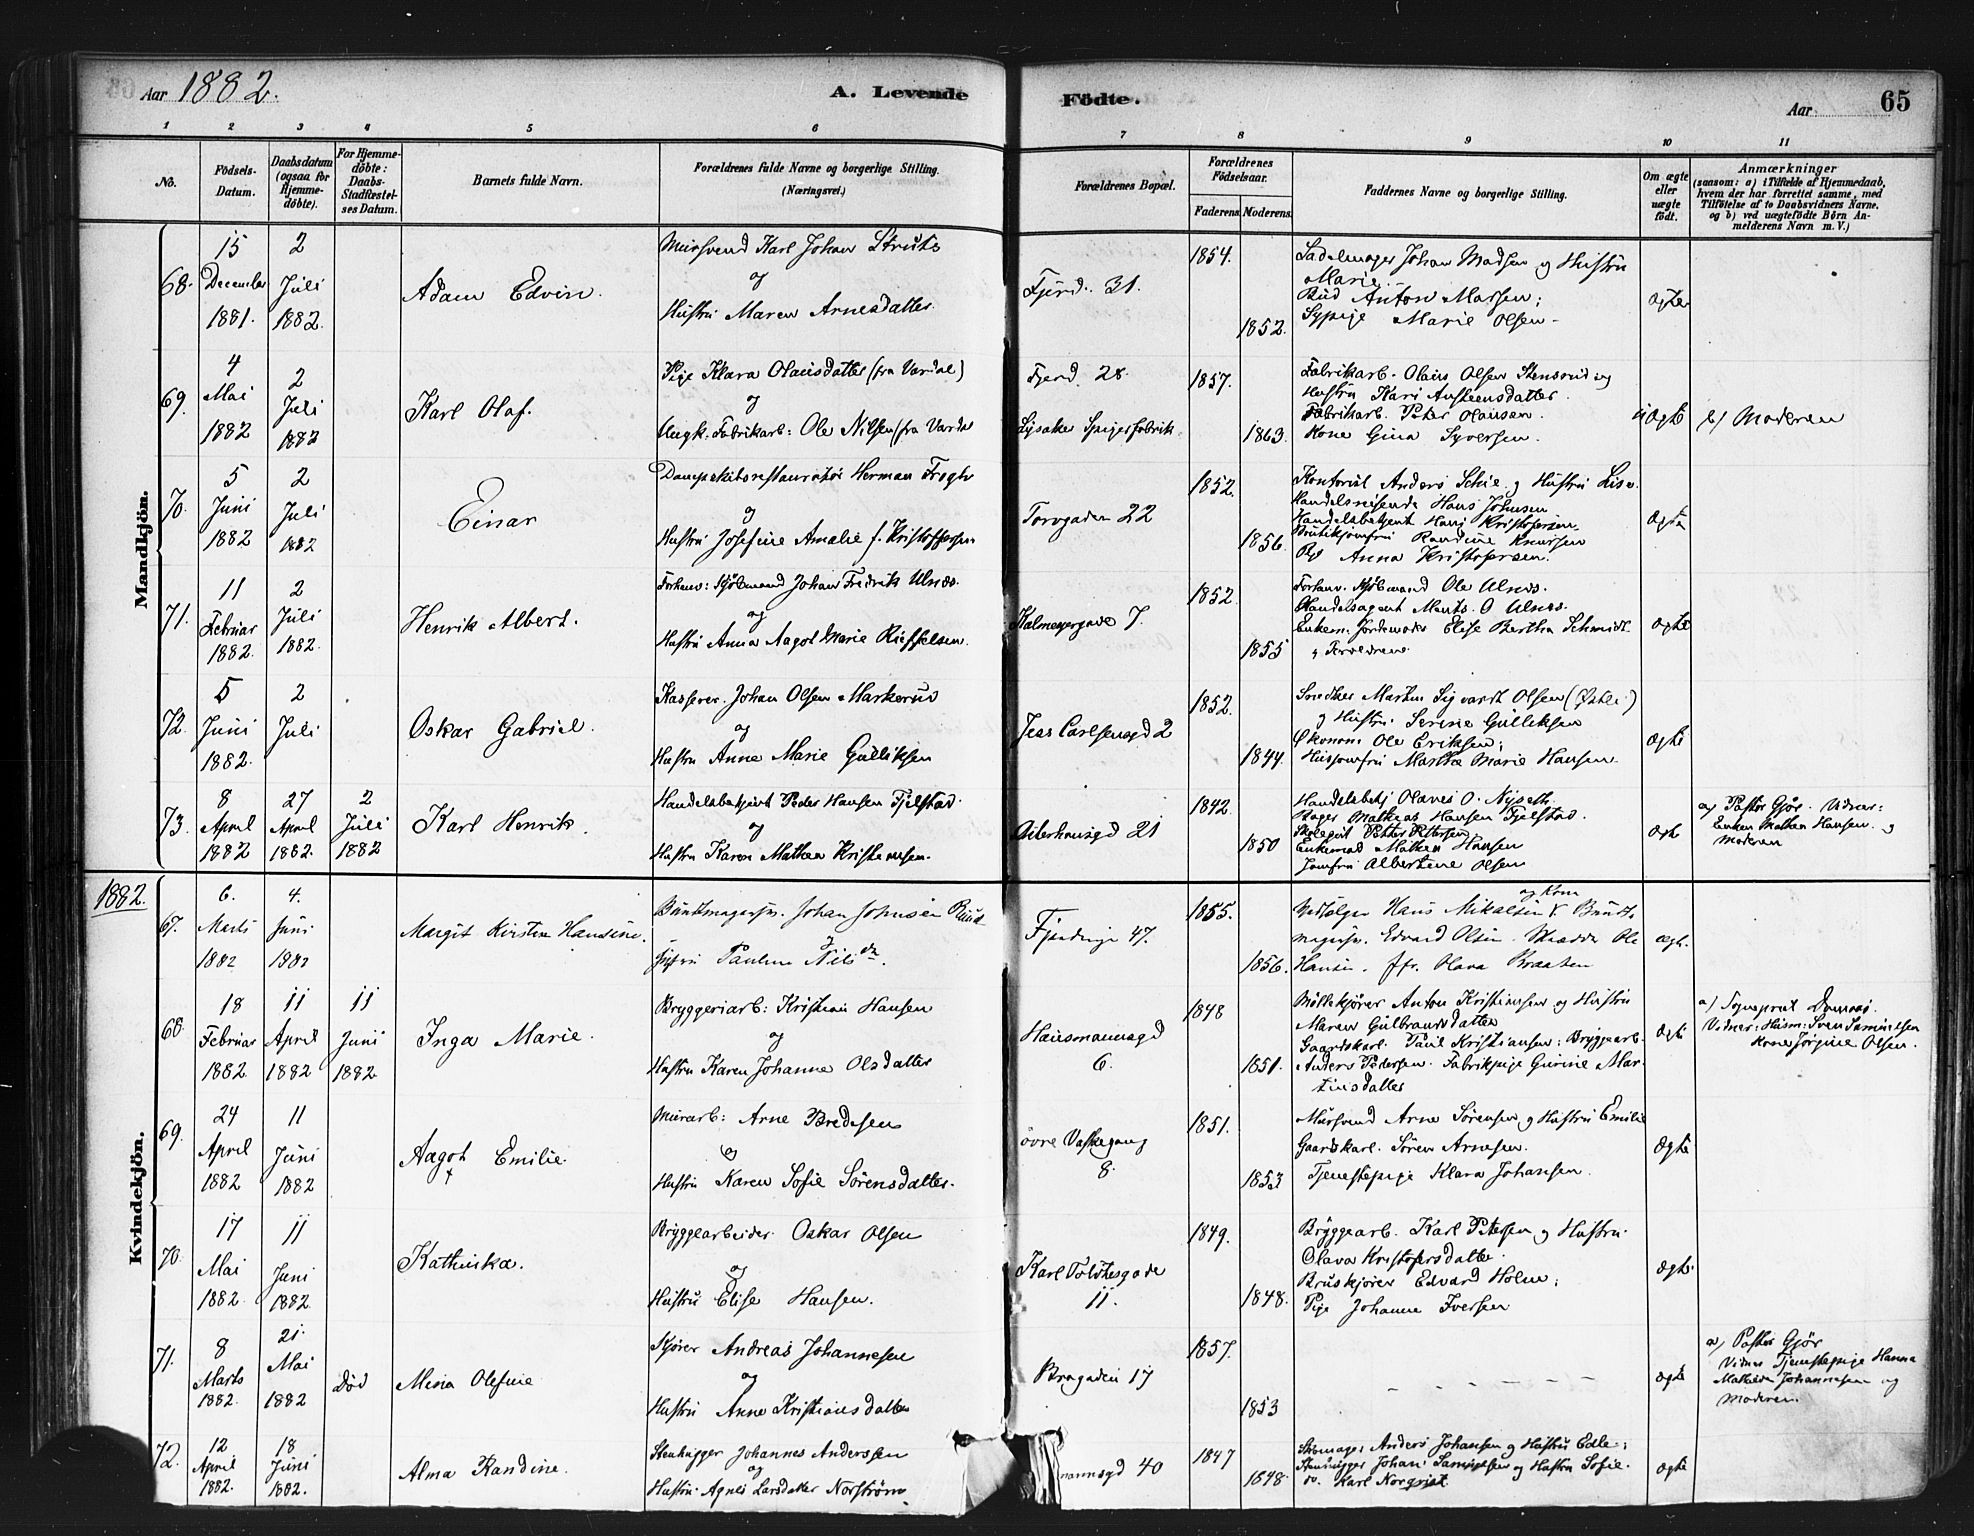 Aar 1882.
A. Levende Födte.
Aar
65
1 2 3 4 5 6 7 8 9 10 11
No.
Födsels-Datum.
Daabsdatum (ogsaa for Hjemme-döbte).
For Hjemme-döbte: Daabs-Stadfæstel-ses Datum.
Barnets fulde Navn.
Forældrenes fulde Navne og borgerlige Stilling. (Næringsvei.)
Forældrenes Bopæl.
Forældrenes Födselsaar.
Faderens. Moderens.
Faddernes Navne og borgerlige Stilling.
Om ægte eller uægte født.
Anmærkninger
(saasom: a) i Tilfælde af Hjemmedaab, hvem der har forrettet samme, med Tilföielse af to Daabsvidners Navne, og b) ved uægtefödte Börn An-melderens Navn m. V.)
Mandkjön.
68. 15 December 1881. 2 Juli 1882.
Adam Edvin.
Mursvend Karl Johan Struts
og
Hustru Maren Arnesdatter.
Fjerd. 31.
1854.
1852.
Sadelmager Johan Madsen og Hustru
Marie.
Bud Anton Massen;
Sypige Marie Olsen.
ægte
69. 4 Mai 1882 2 Juli 1882
Karl Olaf.
Pige Klara Olausdatter (fra Vardal)
og
Ungk. Fabrikarb: Ole Nilsen (fra Vardal
Fjerd. 28.
Lysaker Spigerfabrik.
1857.
1863.
Fabrikarb. Olaus Olsen Stensrud og
Hustru Kari Austensdatter.
Fabrikarb. Peter Olausen.
Kone Gina Syversen.
uægte
b) Moderen
70. 5 Juni 1882 2 Juli 1882
Einar
Dampskibsrestauratør Herman
og
Hustru Josefine Amalie f. Kristoffersen
Torvgaden 22
1852.
1856.
Kontorist Anders Schie og Hustru Lise.
Handelsreisende Hans Johnsen
Handelsbetjent Hans Kristofersen.
Butikjomfru Randine Knutsen
Pige Anna Kristofersen.
ægte
71. 11 Februar 1882. 2 Juli 1882.
Henrik Albert.
Forhenv: Skibsmand Johan Fredrik Ulnæs.
og
Hustru Anna Aagot Marie
Kalmeyergade 7.
1852
1855
Forhenv. Skibsmand Ole Ulnæs.
Handelsagent O Ulnæs.
Enkem. Jordemoder Elise Bertha Schmidt.
og Forældrene
ægte
72. 5 Juni 1882. 2 Juli
Oskar Gabriel.
Kasserer. Johan Olsen Markerud
og
Hustru Anne Marie Gulliksen
Jess Carlsensgd 2
1852.
1844.
Snedker Martin Sigvardt Olsen (Østli)
og Hustru Serine Gulliksen
Økonom Ole Eriksen;
Husjomfru Marthe Marie Hansen.
ægte
73. 8 April 1882 27 April 1882. 2 Juli 1882
Karl Henrik.
Handelsbetjent Peder Hansen Fjelstad.
og
Hustru Karen Mathea Kristensen.
21
1842.
1850
Handelsbetj Olaves O. Nyseth.
Bager Mathias Hansen Fjelstad.
Petter Pettersen
Mathea Hansen
Jomfru Albertine Olsen
ægte
a) Pastor Gjør. Vidner:
Enken Mathea Hansen og
Moderen
1882.
Kvindekjön.
67. 6. Marts 1882 4. Juni 1882
Margit Kirstine Hansine.
Buntmagersv. Johan Johnsen Ruud
og
Hustru Pauline Nilsdtr.
Fjerdinge 47.
1855.
1856.
og Kone
Vedsælger Hans Mikalsen. Bunt-
magersv. Edvard Olsen. Skrædder Ole
Hansen. Jfr. Olava Braaten
ægte.
68. 18 Februar 1882. 11 April 1882 11 Juni 1882
Inga Marie.
Bryggeriarb: Kristian Hansen
og
Hustru Karen Johanne Olsdatter
Hausmannsgd
6.
1848
1851.
Møllekjører Anton Kristiansen og Hustru
Maren Gulbrandsdatter
Gaardskarl. Paul Kristiansen; Bryggearb.
Anders Pedersen. Fabrikpige Gurine Mar-
tinsdatter
ægte
a) Sogneprest
Vidner: Husm: Sven Samuelsen
Kone Jørgine Olsen.
69. 24 April 1882 11 Juni 1882
Aagot Emilie.
+
Murarb: Arne Bredesen
og
Hustru Karen Sofie Sørensdatter.
øvre Vaskegang
8.
1851.
1853
Mursvend Arne Sørensen og Hustru Emilie
Gaardskarl. Søren Arnesen.
Tjenestepige Klara Johansen.
ægte
70. 17 Mai 1882. 11 Juni 1882
Kathinka.
Bryggearbeider Oskar Olsen
og
Hustru Elise Hansen.
Karl Toldtesgade
11.
1849.
1848.
Bryggearb. Karl Petersen og Hustru
Olava Kristofersdatter.
Bruskjører Edvard Holm;
Pige Johanne Iversen
ægte.
71. 8 Marts 1882. 21. Mai 1882 død
Mina Olefine
Kjører Andreas Johannesen
og
Hustru Anne Kristiansdatter
Brogaden 17
1857.
1853
- - - - - -
ægte
a) Pastor Gjør
Vidner Tjenestepige Hanna
Mathilde Johannesen og
Moderen.
72. 12 April 1882. 18 Juni 1882.
Alma Randine.
Stenhugger Johannes Anderssen
og
Hustru. Agnes Larsdatter Norström
mannsgd 40
1847
1848
Skomager Anders Johansen og Hustru Edle;
Stenhugger Johan Samuelsen og Hustru Sofie.
do. Karl Norqvist.
ægte